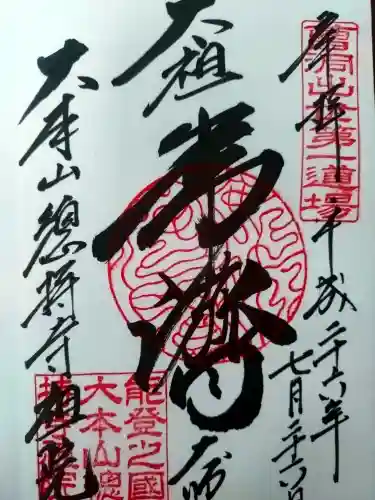 奉拝
平成二十六年
七月二十六
曹洞出世第一道場
大祖常済大師
大本山總持寺祖院
能登之國
大本山總